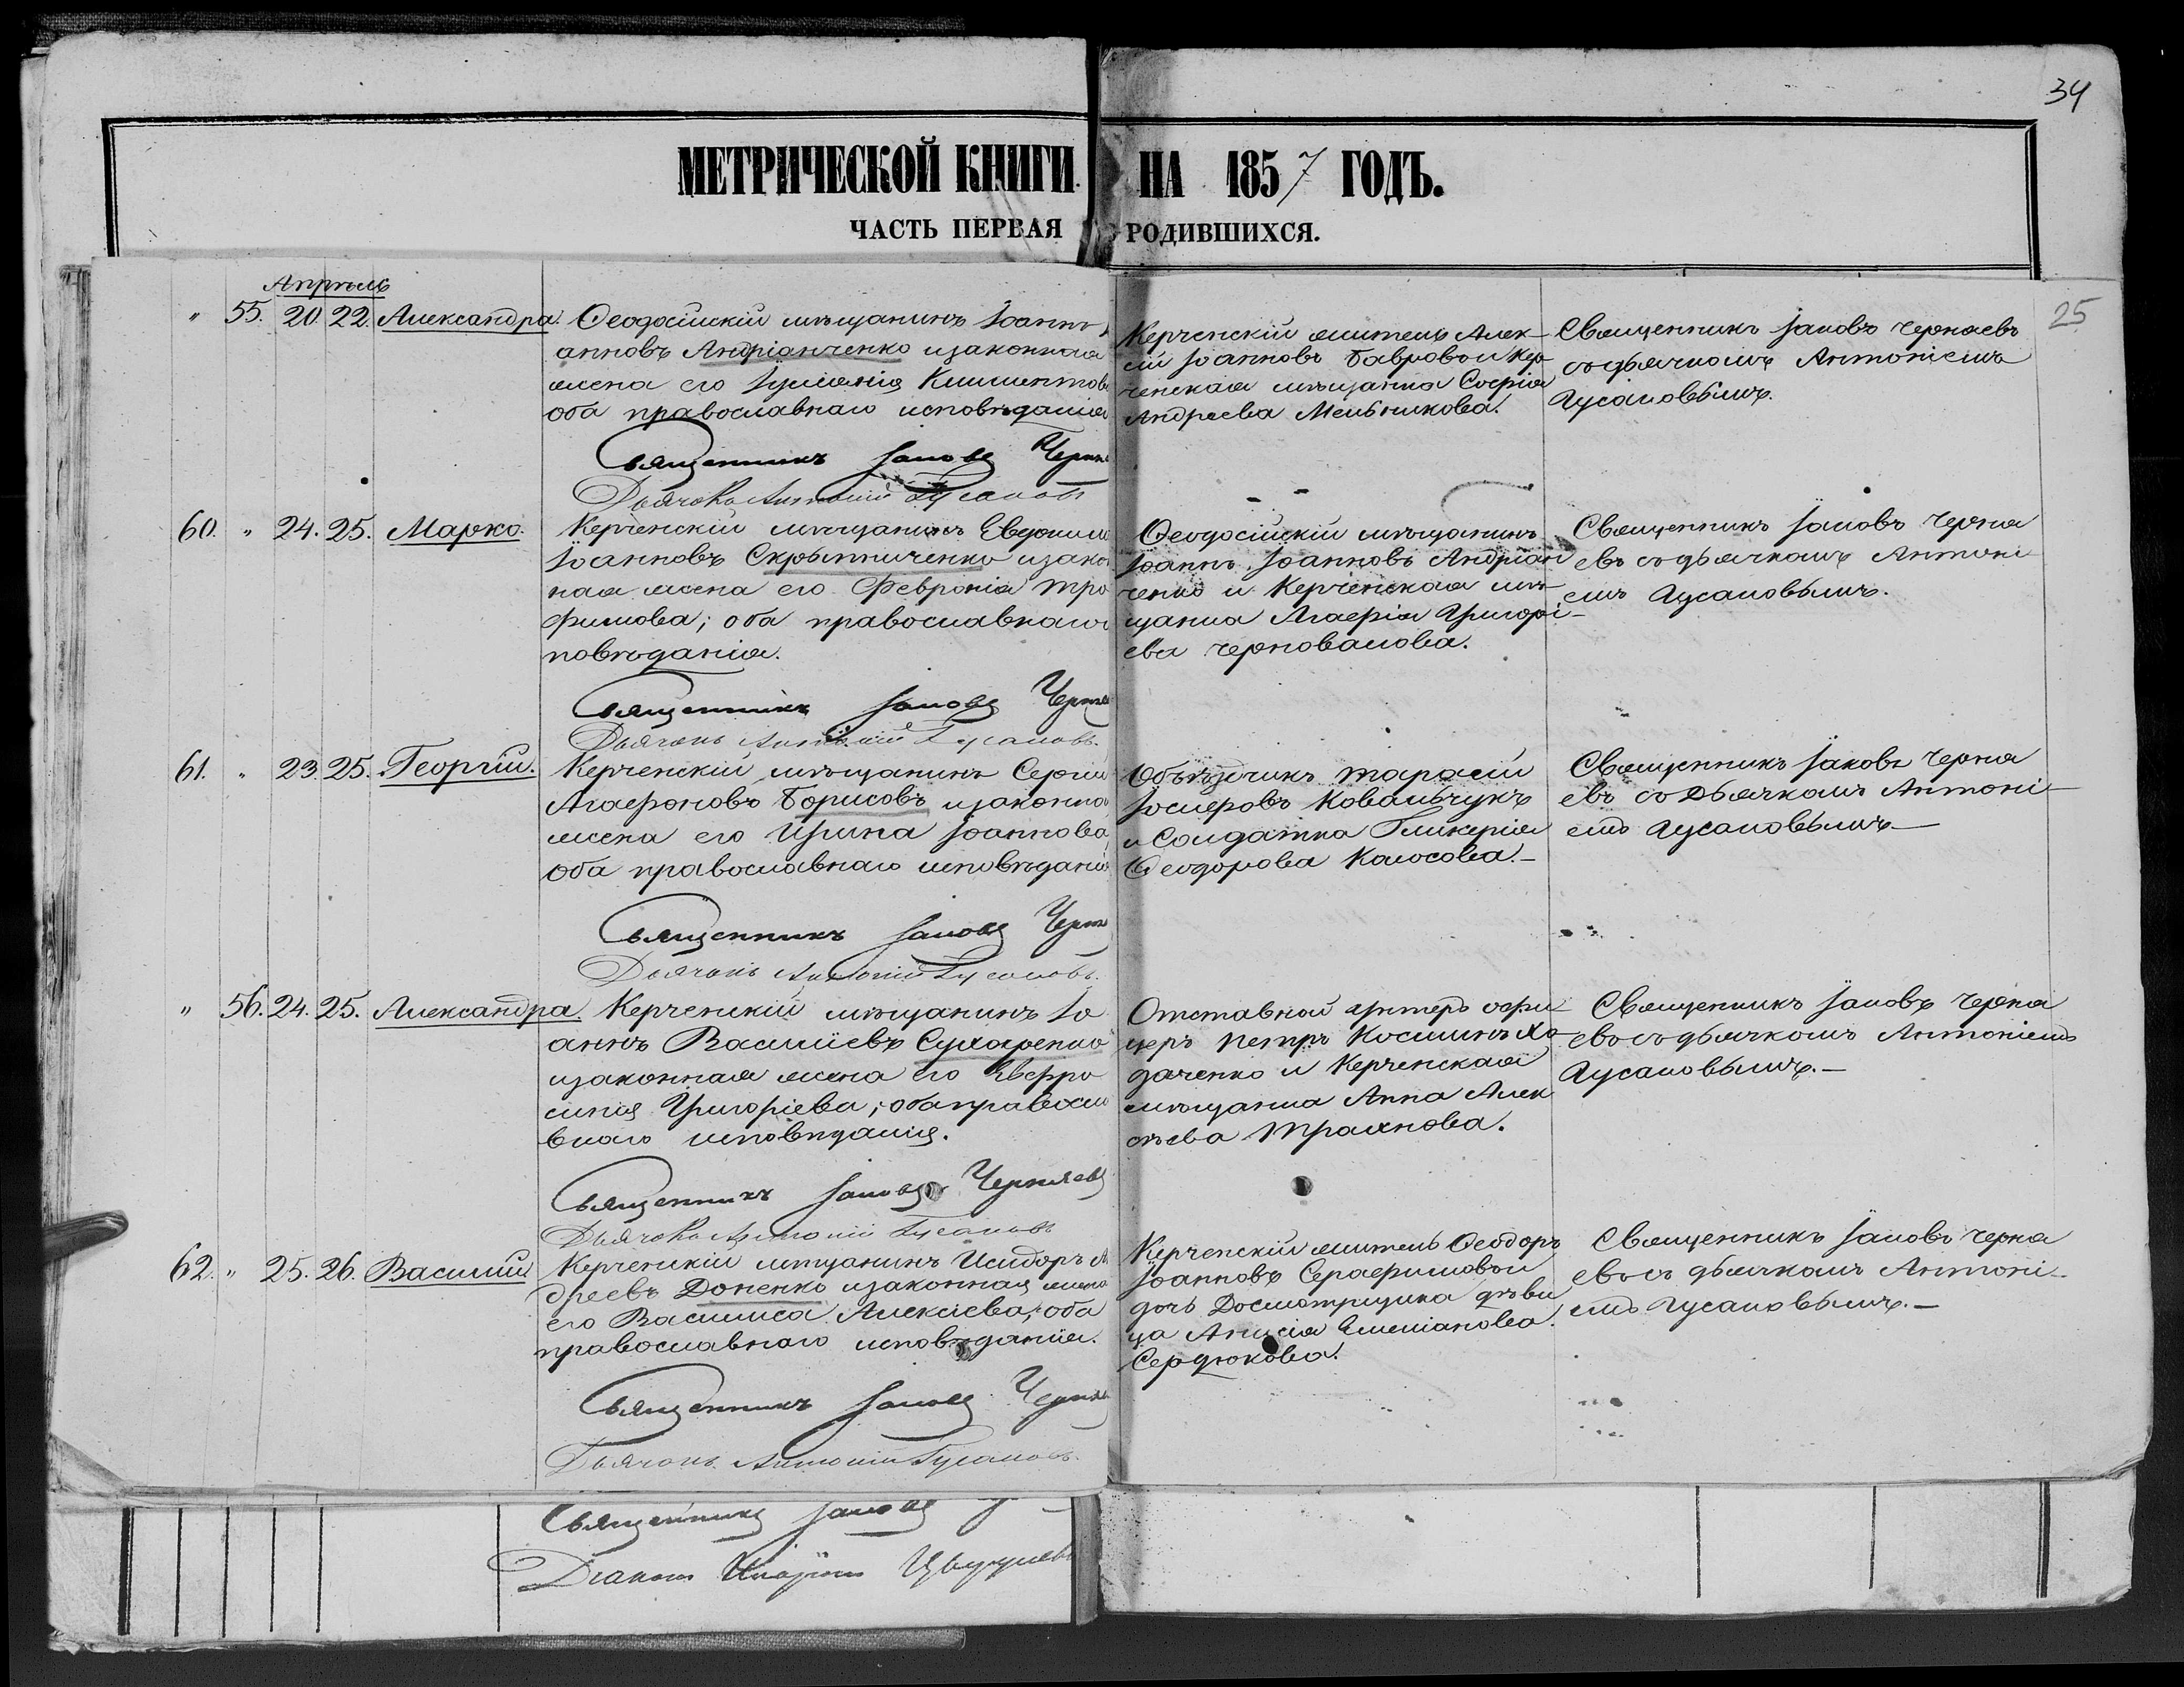 34
МЕТРИЧЕСКОЙ КНИГИ НА 1857 ГОДЪ.
ЧАСТЬ ПЕРВАЯ РОДИВШИХСЯ.
25
Апрѣль
" 55. 20. 22. Александра.
Ѳеодосійскій мѣщанинъ Іоаннъ
анновъ Андріанченко и законная
жена его Іуліанія Климентова
оба православнаго исповѣданія
Священникъ Іаковъ Черня
Дьячокъ Антоній Гусаковъ
Керченскій житель Алек-
сій Іоанновъ Бавровъ и Кер
ченская мѣщанка Софія
Андреева Мельникова.
Священникъ Іаковъ Черняевъ
съ дьячкомъ Антоніемъ
Гусаковымъ.
60. " 24. 25. Марко.
Керченскій мѣщанинъ Евдокимъ
Іоанновъ Скрыпниченко и закон
ная жена его Февронія Тро
фимова; оба православнаго
повѣданія.
Священникъ Іаковъ Черня
Дьячокъ Антоній Гусаковъ.
Ѳеодосійскій мѣщанинъ
Іоаннъ Іоанновъ Андріан
ченко и Керченская мѣ-
щанка Агафія Григорі-
ева Черновалова.
Священникъ Іаковъ Черня
евъ съ дьячкомъ Антоні
емъ Гусаковымъ.
61. " 23. 25. Георгій.
Керченскій мѣщанинъ Сергій
Агафоновъ Борисовъ и законна
жена его Ирина Іоаннова
оба православнаго исповѣданія
Священникъ Іаковъ Черня
Дьячокъ Антоній Гусаковъ.
Объѣздчикъ Тарасій
Іосифовъ Ковальчукъ
и Солдатка Гликерія
Ѳеодорова Колосова.-
Священникъ Іаковъ Черня
евъ съ Дьячкомъ Антоні-
емъ Гусаковымъ.-
" 56. 24. 25. Александра.
Керченскій мѣщанинъ Іо
аннъ Василіевъ Сухаренко
и законная жена его Евфро
синія Григоріева; оба правосла
внаго исповѣданія.
Священникъ Іаковъ Черняевъ
Дьячокъ Антоній Гусаковъ
Отставной унтеръ офи
церъ Петръ Косминъ Хо
даченко и Керченская
мѣщанка Анна Алек
сѣева Траянова.
Священникъ Іаковъ Черня
евъ съ дьячкомъ Антоніемъ
Гусаковымъ.-
62. " 25. 26. Василій
Керченскій мѣщанинъ Исидоръ Ан
дреевъ Доненко и законная жена
его Василиса Алексіева; оба
православнаго исповѣданія.
Священникъ Іаковъ Черня
Дьячокъ Антоній Гусаковъ.
Керченскій житель Ѳеодоръ
Іоанновъ Серафимовъ и
дочь Досмотрщика дѣви
ца Анисія Емеліанова
Сердюкова.
Священникъ Іаковъ Черня
евъ съ дьячкомъ Антоні-
емъ Гусаковымъ.-
Священникъ Іаковъ
Діаконъ